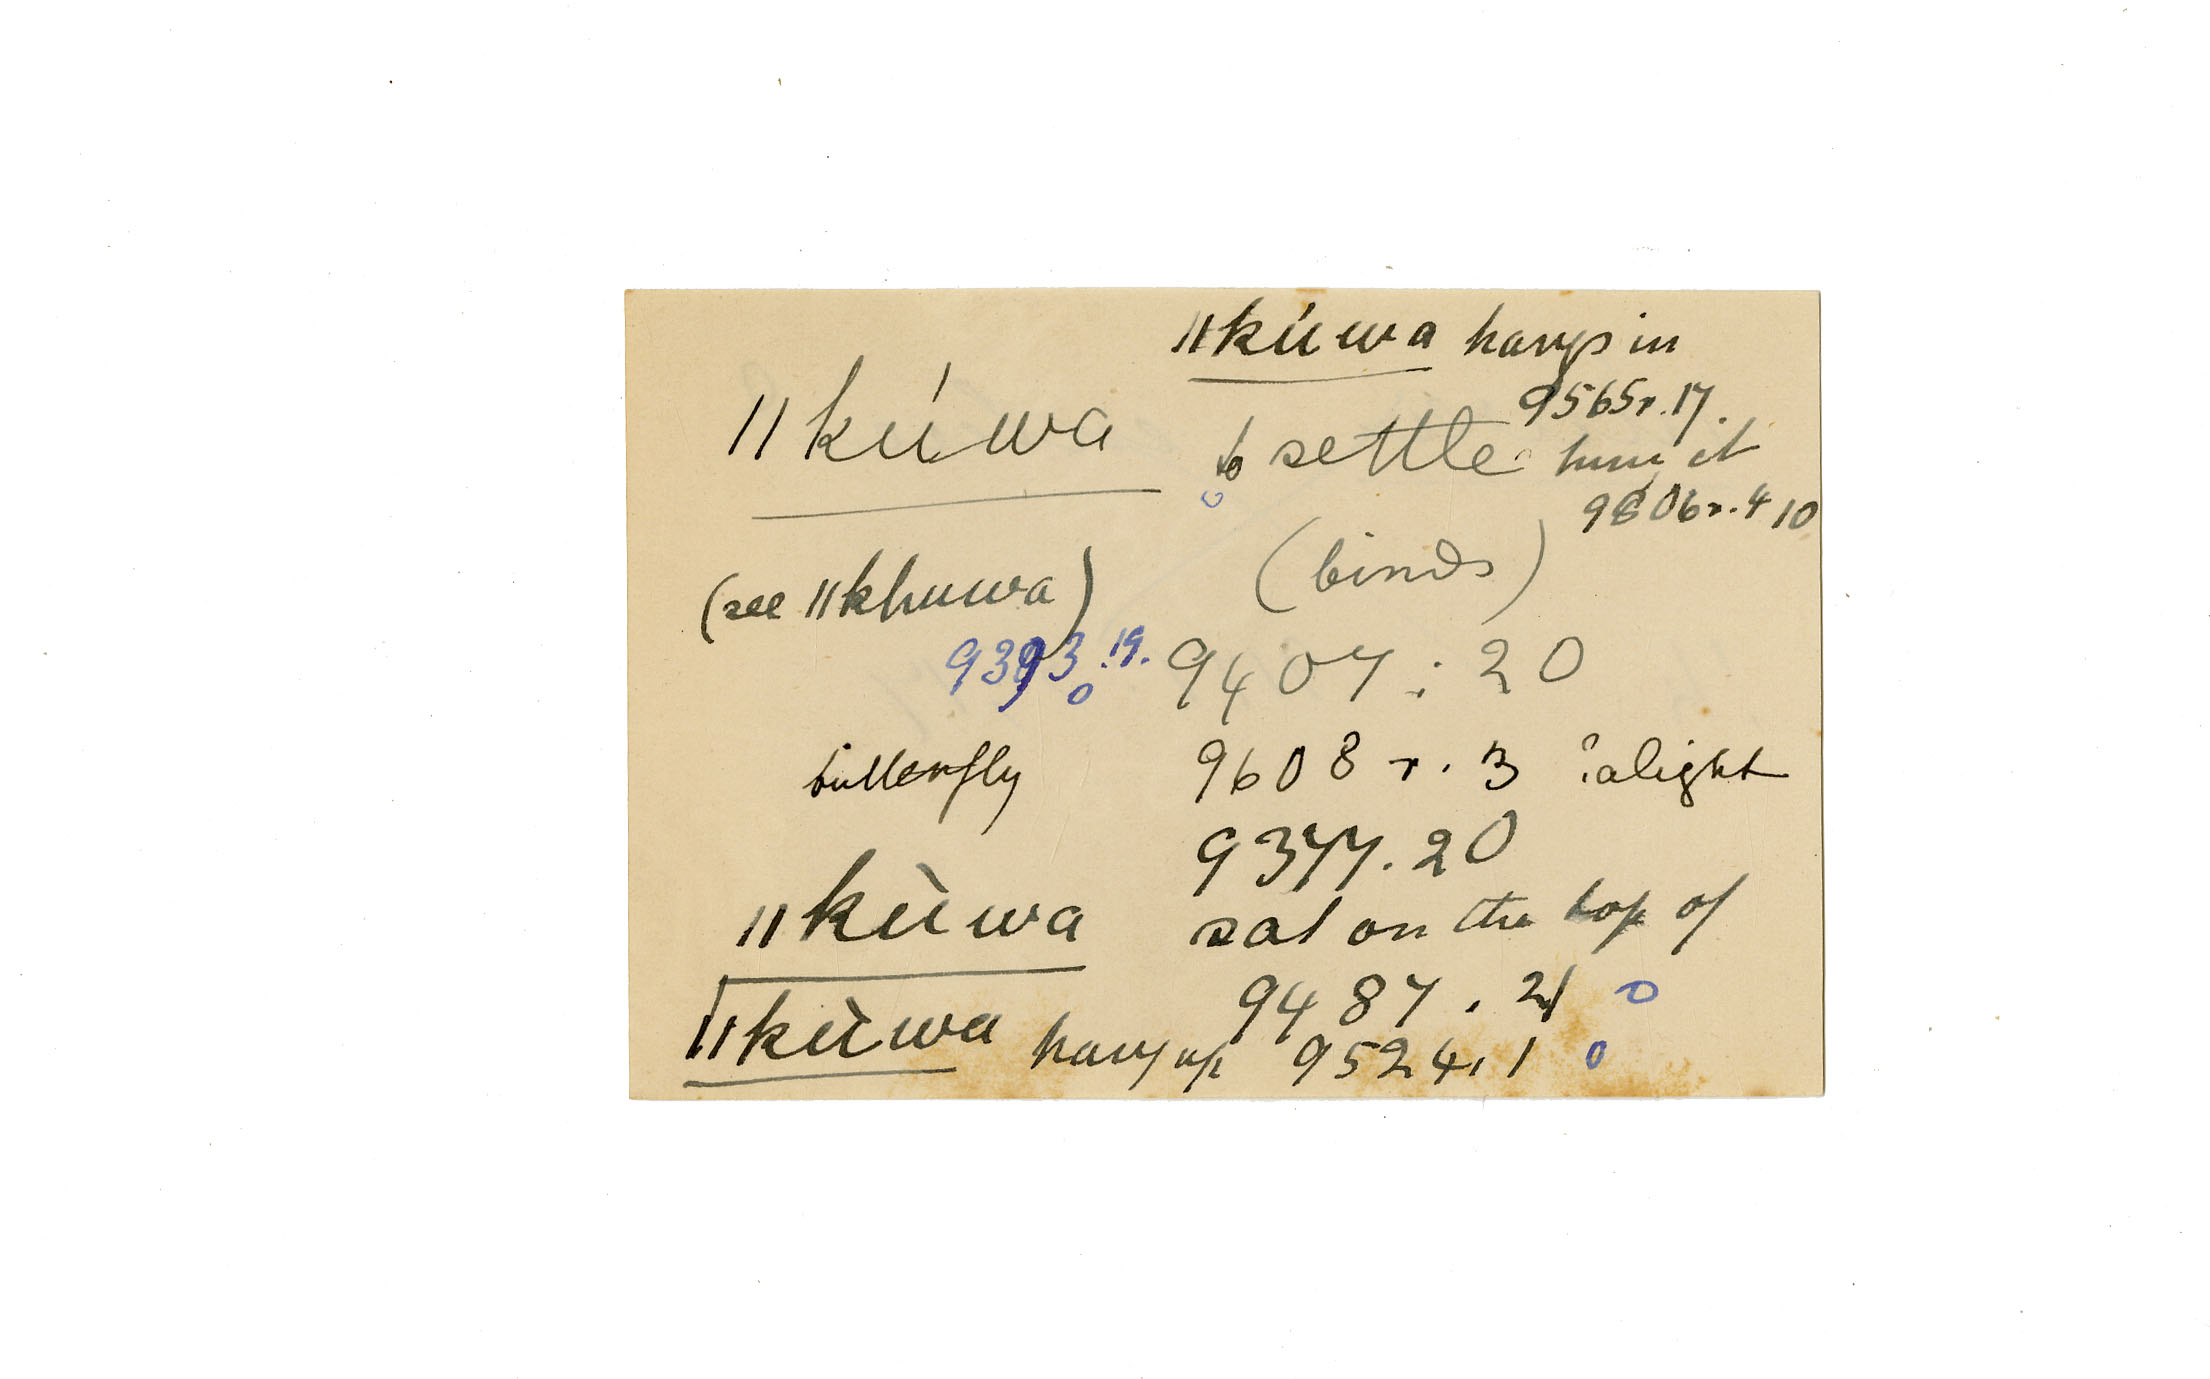 ǁkúwa hangs in
9565r.17.
ǁkúwa to settle hung it
9806r.4 10
(see ǁkhuwa) (binds)
9393.19. 9407:20
butterfly 9608 r. 3 ?alight
9377.20
ǁkùwa sat on the top of
9487.21
ǁkùwa hang up 9524.1